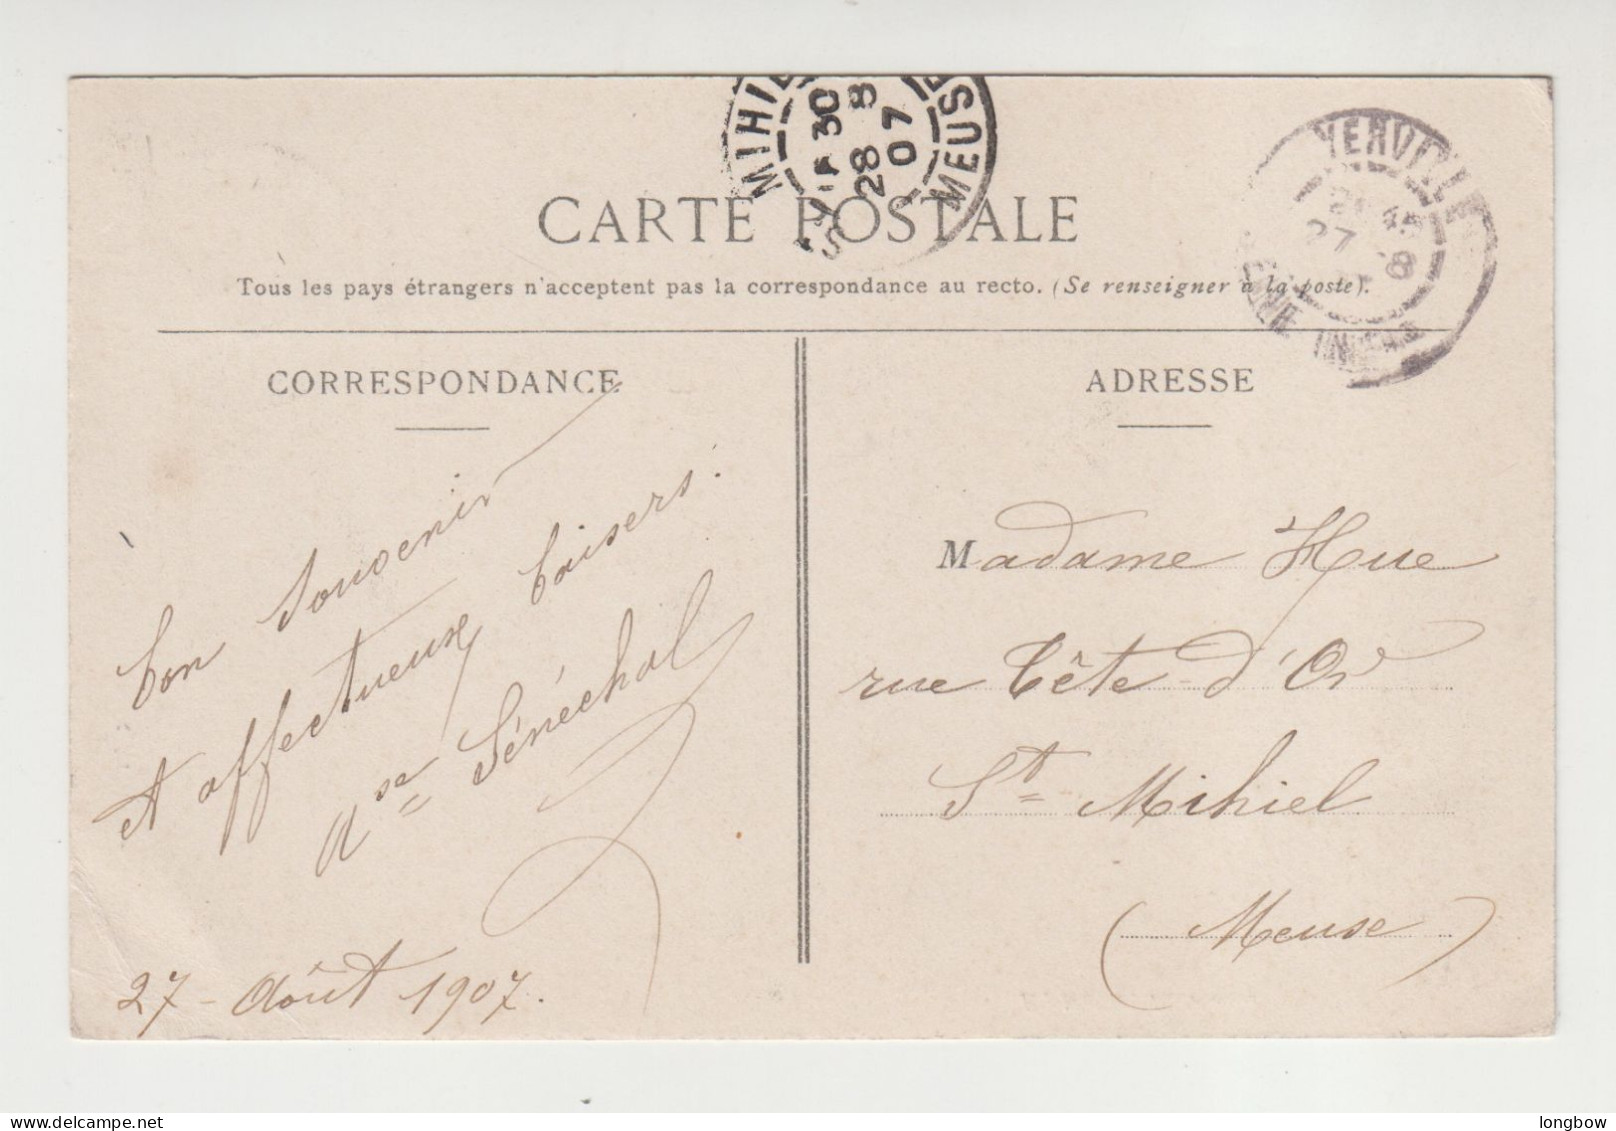 MIHIEL
MEUSE
30
28 8
07
YERVILLE
27 8
CARTE POSTALE
Tous les pays étrangers n'acceptent pas la correspondance au recto. (Se renseigner à la poste).
CORRESPONDANCE
bon souvenir
et affectueux baisers.
Sénéchal
27 - Août 1907.
ADRESSE
Madame Hue
rue Tête-d'Or
St Mihiel
(Meuse)
longbow